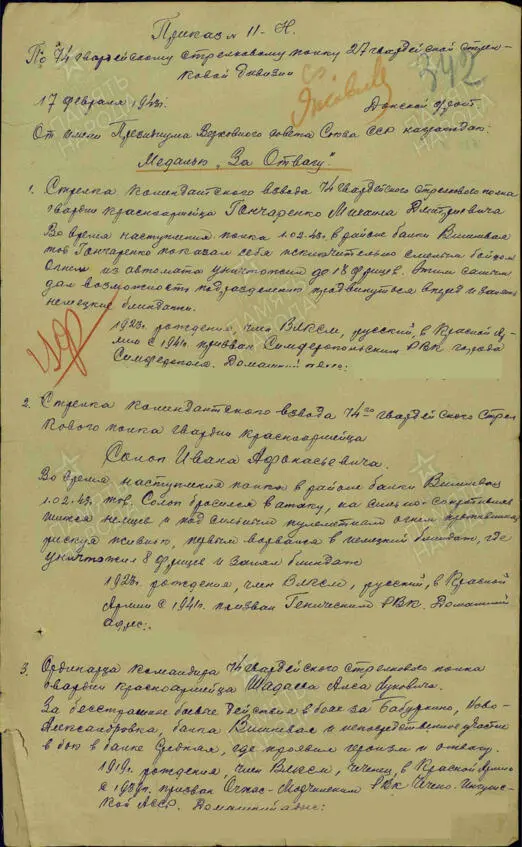 Приказ № 11-Н.
По 74 гвардейскому стрелковому полку 27 гвардейской стрел-
ковой дивизии
342
17 февраля 1943г.
Донской фронт.
От имени Президиума Верховного Совета Союза ССР награждаю:
Медалью „За Отвагу".
1. Стрелка комендантского взвода 74 гвардейского стрелкового полка
гвардии красноармейца Гончаренко Михаила Дмитриевича
Во время наступления полка 1.02.43. в районе балки Вишневая
тов Гончаренко показал себя исключительно смелым бойцом
Огнем из автомата уничтожил до 18 фрицев. Этим самым
дал возможность подразделению продвинуться вперед и занять
немецкие блиндажи.
1923г. рождения, член ВЛКСМ, русский, в Красной Ар-
мии с 1941г. призван Симферопольским РВК города
Симферополя. Домашний
2. Стрелка комендантского взвода 74го гвардейского Стрел
кового полка гвардии красноармейца
Солоп Ивана Афонасьевича.
Во время наступления полка в районе балки Вишневая
1.02.43. тов. Солоп бросился в атаку, на сильно-сопротивляв
шихся немцев и под сильным пулеметным огнем противника,
рискуя жизнью, первым ворвался в немецкий блиндаж, где
уничтожил 8 фрицев и занял блиндаж
1923г. рождения, член ВЛКСМ, русский, в Красной
Армии с 1941г. призван Геническим РВК. Домашний
адрес:
3. Ординарца командира 74 гвардейского стрелкового полка
гвардии красноармейца Шадаева
За бесстрашные боевые действия в боях за Бабуркино, Ново-
Александровка, балка Вишневая и непосредственное участие
в бою в балке Средная, где проявил героизм и отвагу.
1919г. рождения, член ВЛКСМ, чеченец, в Красной Армии
с 1939г. призван РВК Чечено-Ингуш-
ской АССР. Домашний адрес:
ПАМЯТЬ НАРОДА